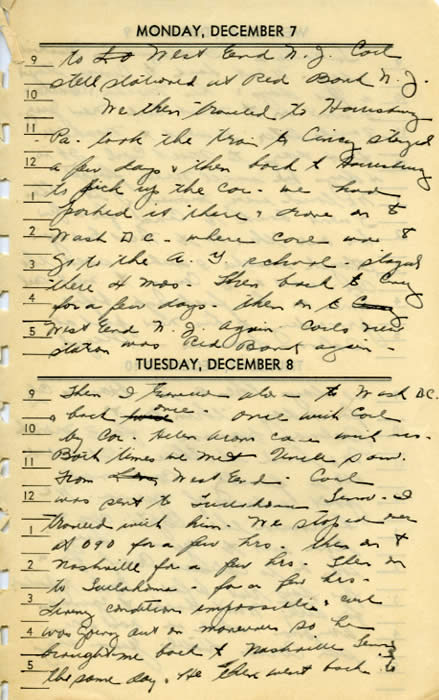 MONDAY, DECEMBER 7
9 to West End N. J. Carl
still stationed at Red Bank N. J.
10 We then traveled to Harrisburg
11 Pa. took the train to Cincy stayed
12 a few days & then back to Harrisburg
to pick up the car - we had
1 parked it there & drove on to
2 Wash D C. - where Carl was to
3 go to the A. G. school - stayed
there 4 mos. Then back to Cincy
4 for a few days - then on to Cincy
5 West End N. J. again - Carls new
station was Red Bank again -
TUESDAY, DECEMBER 8
9 Then I traveled alone to Wash DC.
& back once - once with Carl
10 by car. Helen came with us.
11 Both times we met Uncle Sam.
From West End - Carl
12 was sent to Tullahoma Tenn - I
1 traveled with him. We stoped over
at for a few hrs. then on to
2 Nashville for a few hrs. Then on
to Tullahoma - for a few hrs -
3 Living conditions impossible & Carl
4 was going out on manuvers so he
brought me back to Nashville Tenn
5 the same day. He then went back to